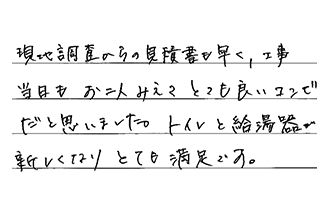 現地調査からの見積書も早く,工事
当日も お二人みえて とても良いコンビ
だと思いました。トイレと給湯器が
新しくなり とても満足です。